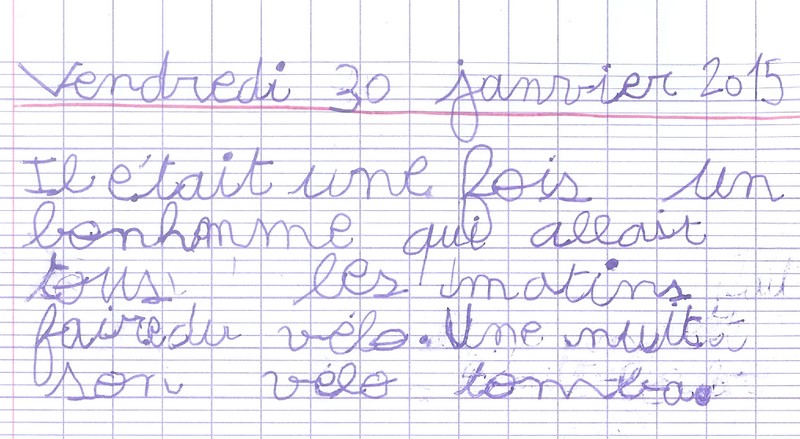 Vendredi 30 janvier 2015
Il était une fois un
bonhomme qui allait
tous les matins
faire du vélo. Une nuit
son vélo tomba.